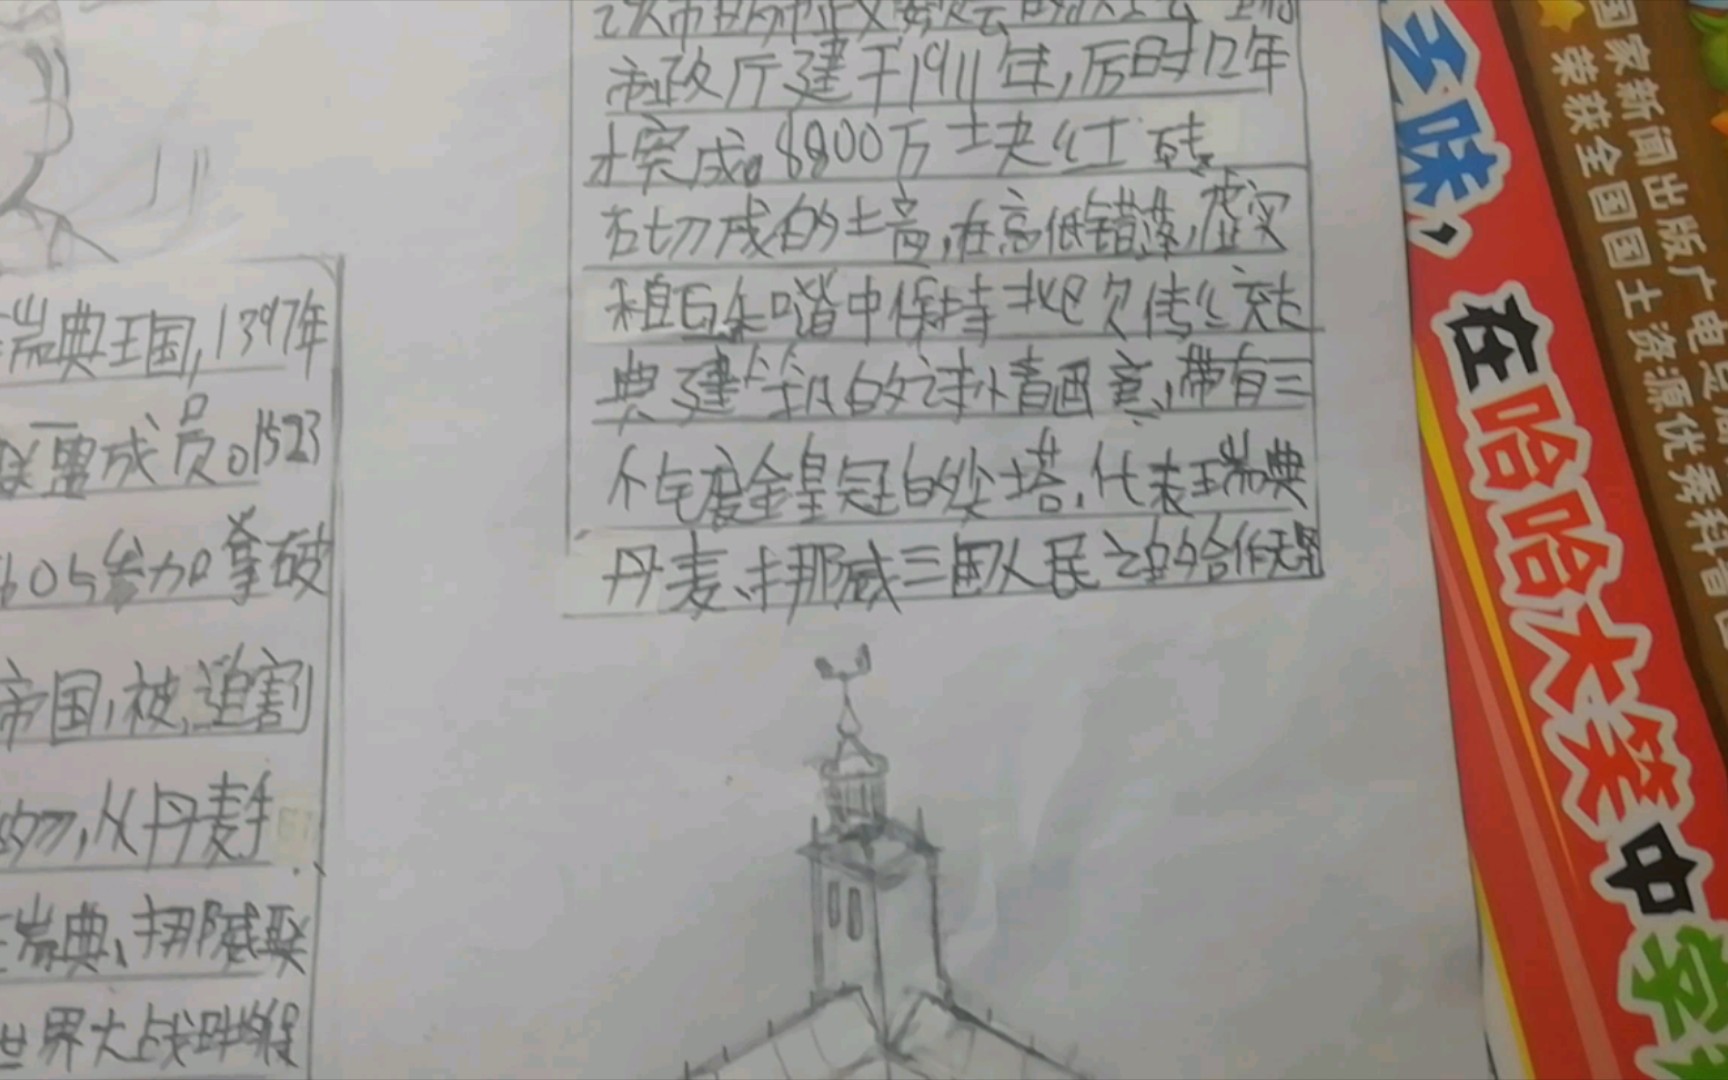 市政厅建于1911年,历时12年
才完成。8800万块红砖
右切成的土高,在高低错落,虚实
粗自和谐中保持北欧传统充古
典建筑的诗情画意,带有三
个宅度金皇冠的尖塔,代表瑞典
丹麦、挪威三国人民之的合作无
瑞典王国,1397年
联盟成员。1523
805参加拿破
帝国,被迫割
从丹麦手
瑞典、挪威联
世界大战时
多味,
在哈哈大笑中
国家新闻出版广电
荣获全国国土资源优秀科普